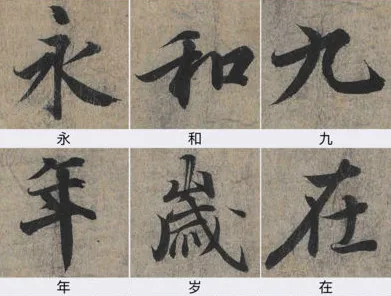 永和九
永和九
年歲在
年岁在